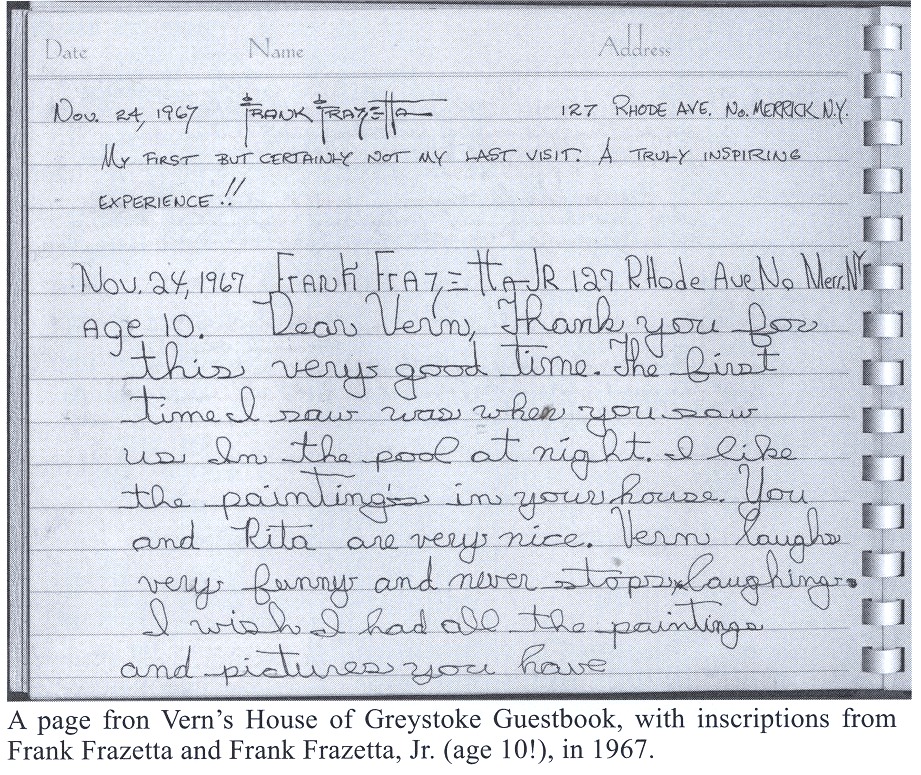 Date Name Address
Nov. 24, 1967 FRANK FRAZETTA 127 RHODE AVE. No. MERRICK N.Y.
MY FIRST BUT CERTAINLY NOT MY LAST VISIT. A TRULY INSPIRING
EXPERIENCE!!
Nov. 24, 1967 FRANK FRAZETTA JR 127 RHode Ave No Merr. NY
Age 10. Dear Vern, Thank you for
this very good time. The first
time I saw was when you saw
us In the pool at night. I like
the paintings in your house. You
and Rita are very nice. Vern laughs
very funny and never stops laughing.
I wish I had all the paintings
and pictures you have
A page fron Vern's House of Greystoke Guestbook, with inscriptions from
Frank Frazetta and Frank Frazetta, Jr. (age 10!), in 1967.